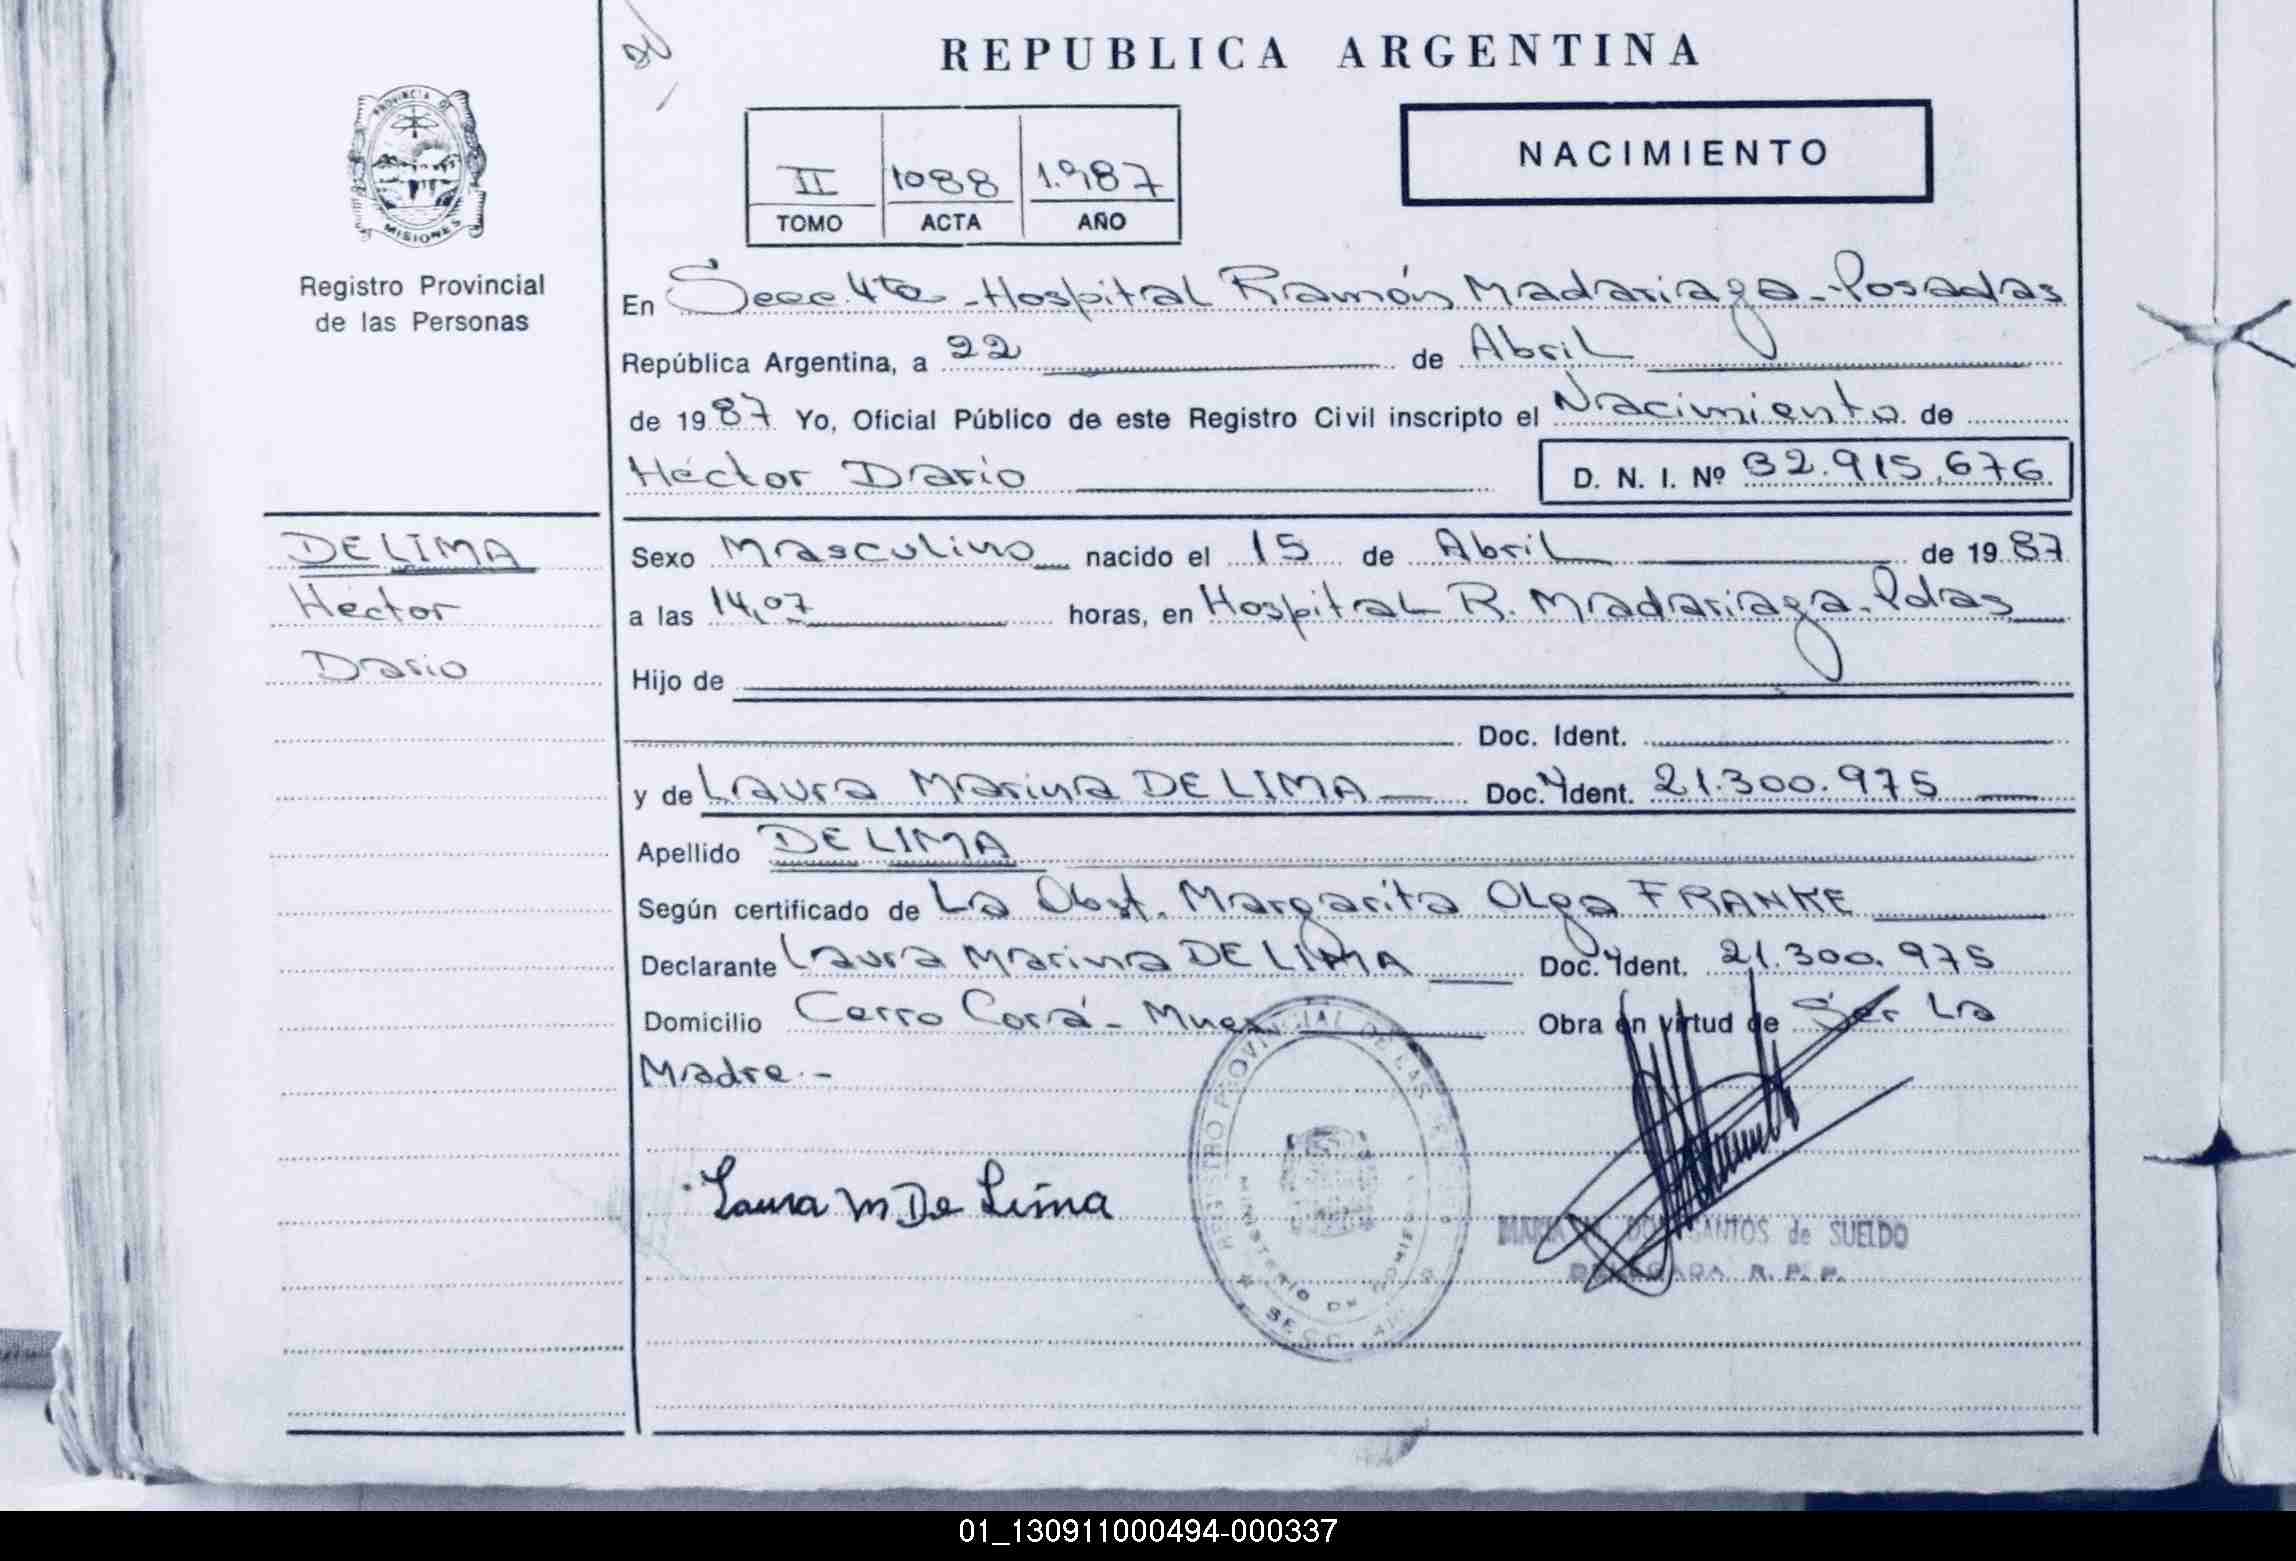 REPUBLICA ARGENTINA
PROVINCIA D
MISIONES
Registro Provincial
de las Personas
II 1088 1.987
TOMO ACTA AÑO
NACIMIENTO
En Secc. 4ta - Hospital Ramón Madariaga - Posadas
República Argentina, a 22 de Abril
de 1987 Yo, Oficial Público de este Registro Civil inscripto el Nacimiento de
Héctor Dario D. N. I. Nº 32.915.676
DE LIMA
Héctor
Dario
Sexo Masculino nacido el 15 de Abril de 1987
a las 14,07 horas, en Hospital R. Madariaga - Pdas
Hijo de
Doc. Ident.
y de Laura Marina DE LIMA Doc. y Ident. 21.300.975
Apellido DE LIMA
Según certificado de La Obst. Margarita Olga FRANKE
Declarante Laura Marina DE LIMA Doc. y Ident. 21.300.975
Domicilio Cerro Corá - Mnes Obra en virtud de Ser La
Madre.-
REGISTRO PROVINCIAL DE LAS
MINISTERIO DE
SECC. 4
Laura M De Lima
SANTOS de SUELDO
DELEGADA R. P. P.
01_130911000494-000337